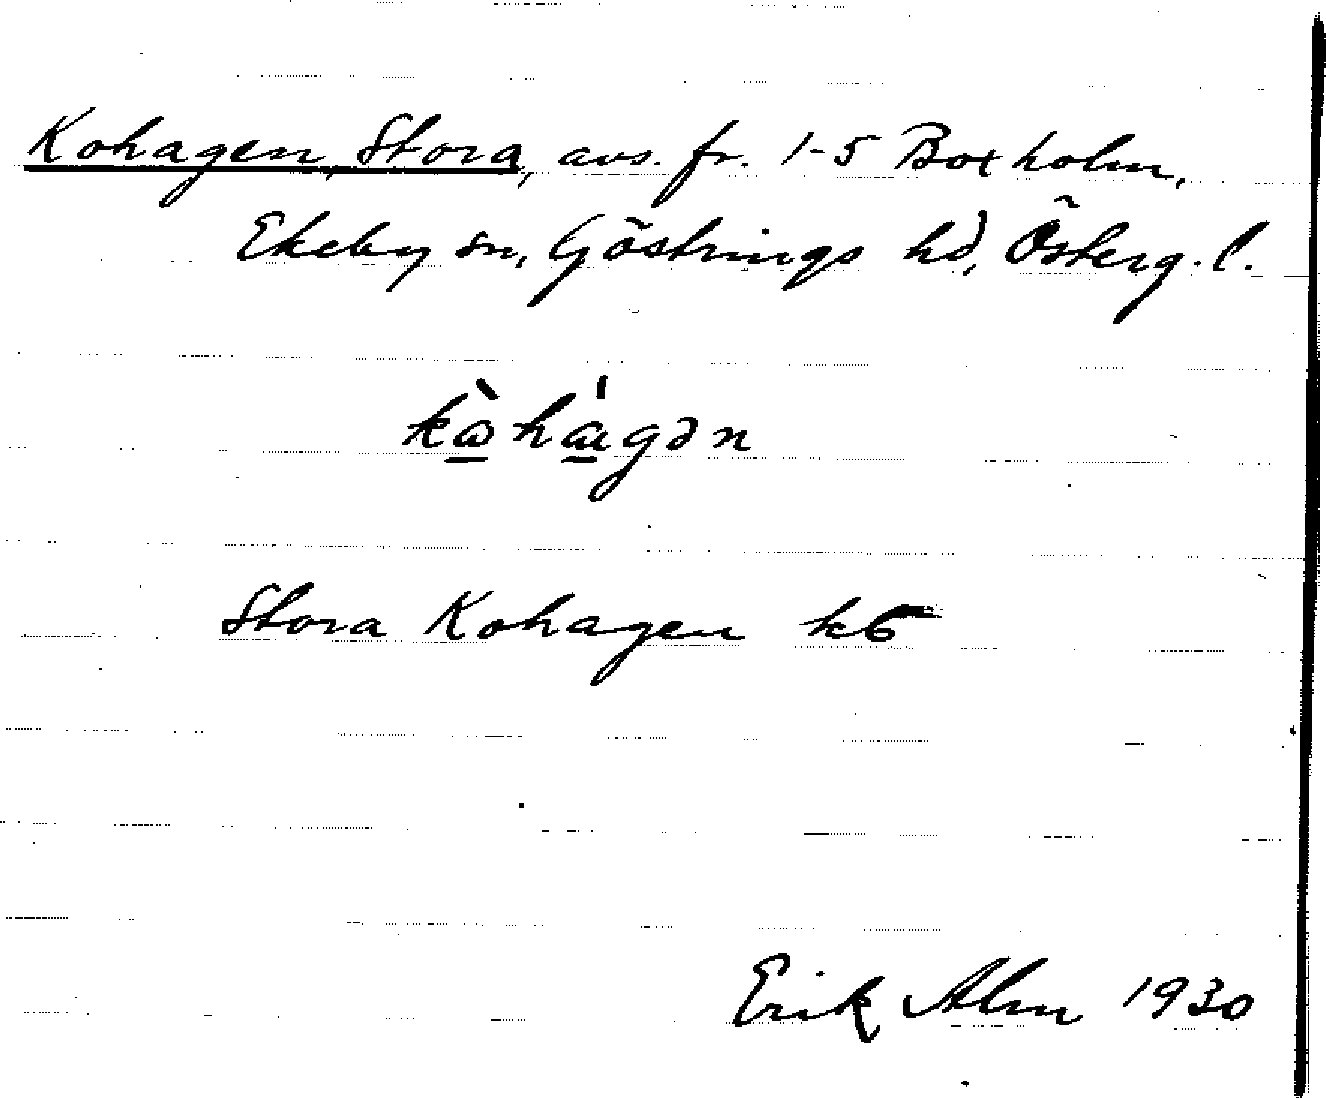 Kohagen, Stora, avs. fr. 1-5 Boxholm,
Ekeby sn, Göstrings hd, Österg. l.
kɷ̀hágən
Stora Kohagen k6
Erik Alm 1930